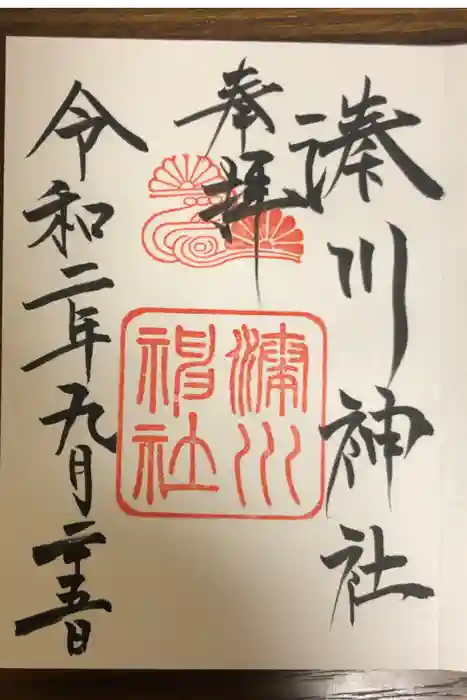 奉拝
湊川神社
湊川
神社
令和二年九月二十五日